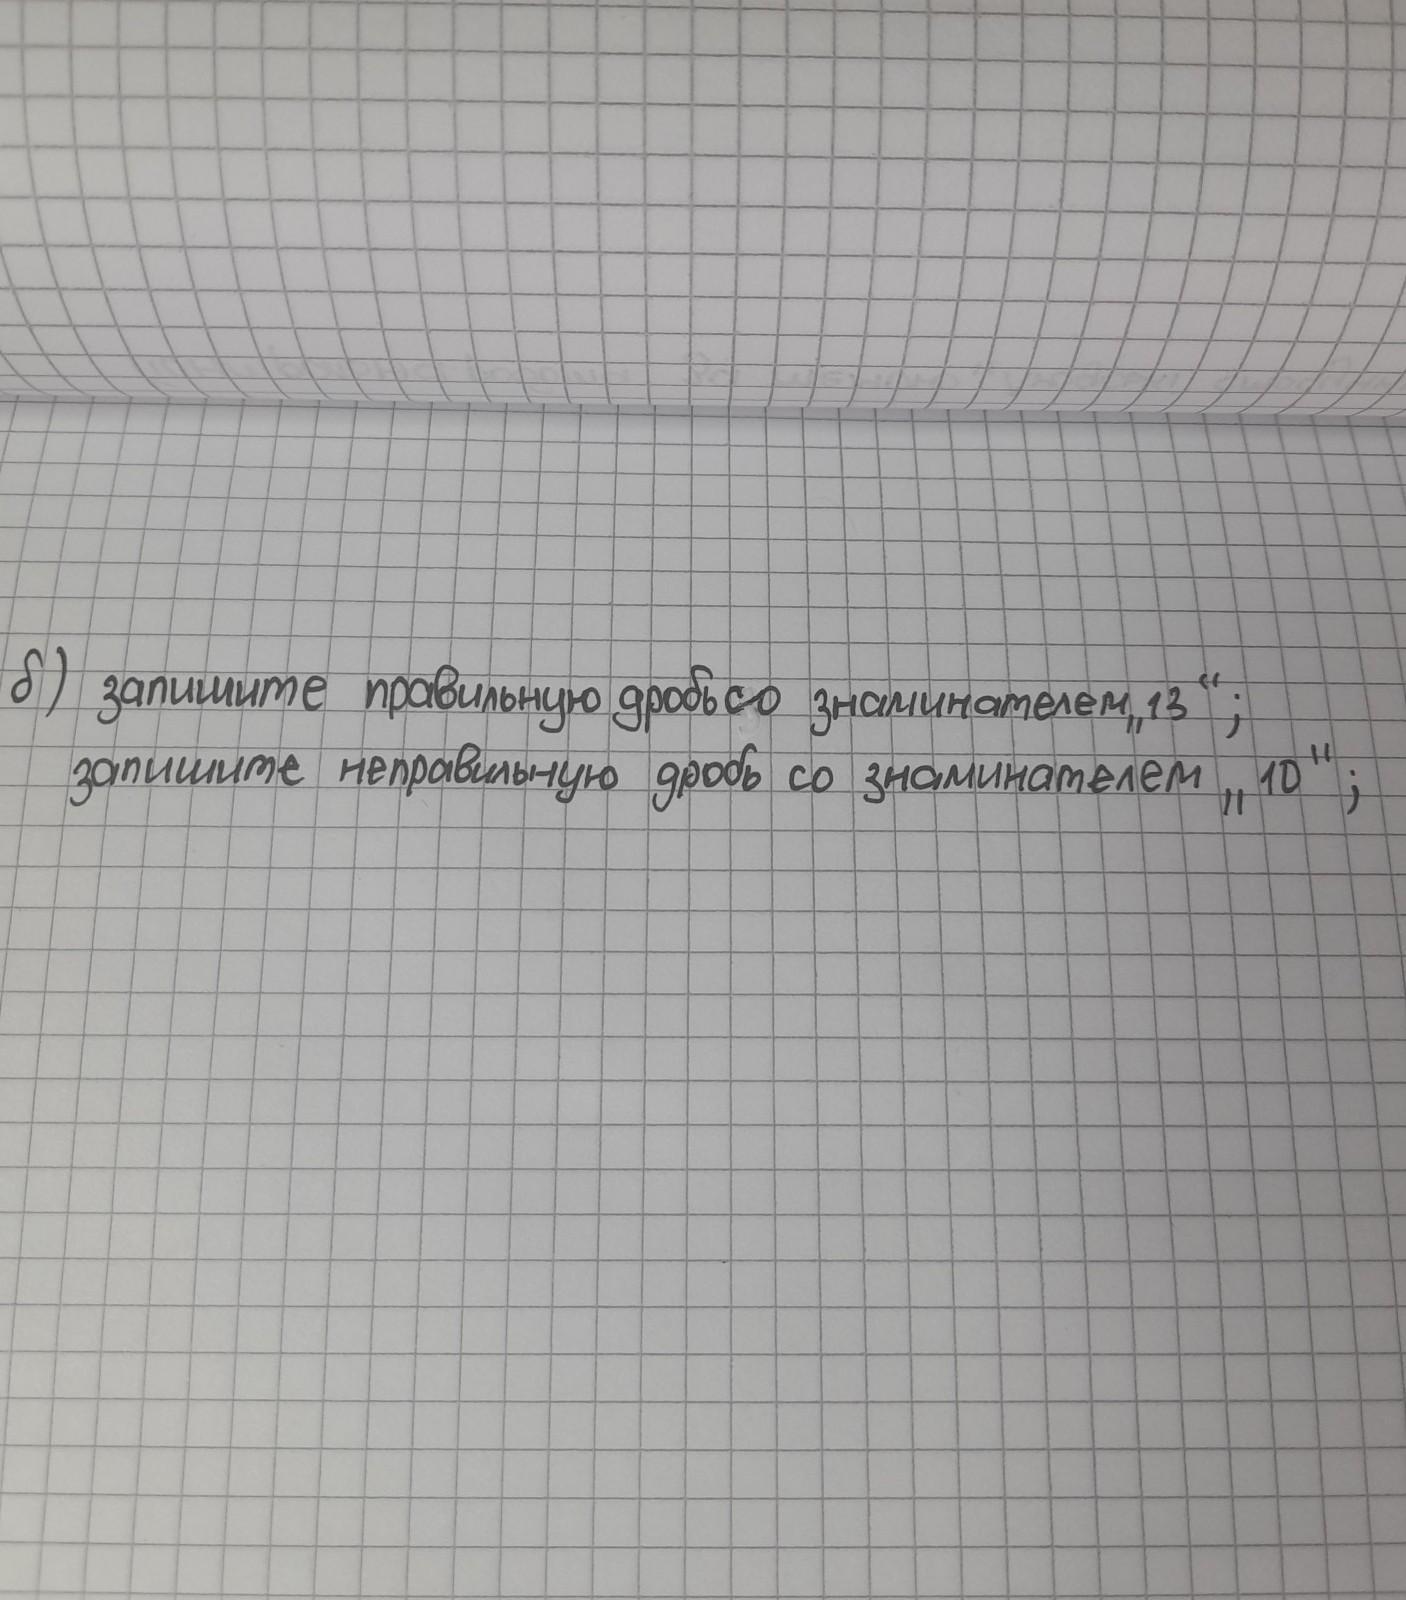 б) запишите правильную дробь со знаминателем „13“;
запишите неправильную дробь со знаминателем „10";